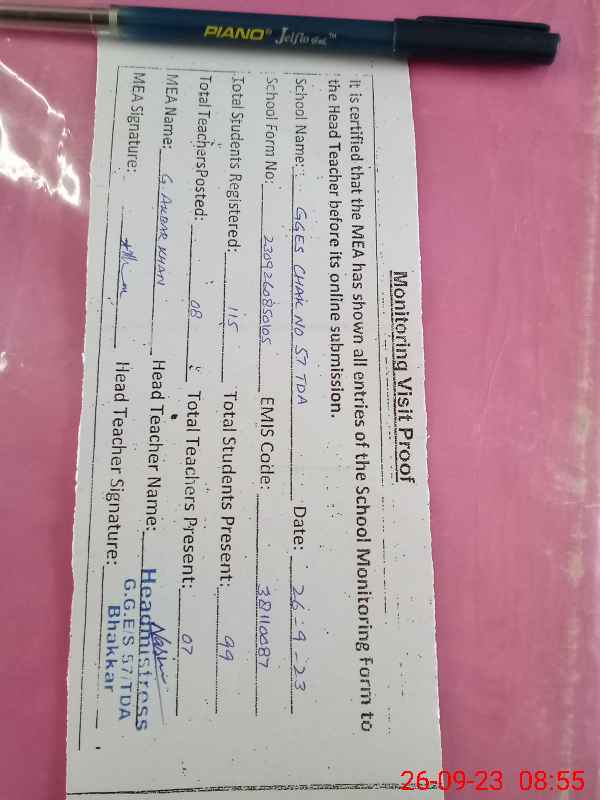 PIANO® Jelflo Gel.™
Monitoring Visit Proof
it is certified that the MEA has shown all entries of the School Monitoring Form to
the Head Teacher before its online submission.
School Name: GGES CHAK NO 57 TDA Date: 26-9-23
School Form No: 2309260850105 EMIS Code: 38110087
Total Students Registered: 115 Total Students Present: 99
Total TeachersPosted: 08 Total Teachers Present: 07
MEA Name: G. AKBAR KHAN Head Teacher Name:
MEA Signature: Head Teacher Signature:
Headmistress
G.G.E/S 57/TDA
Bhakkar
26-09-23 08:55